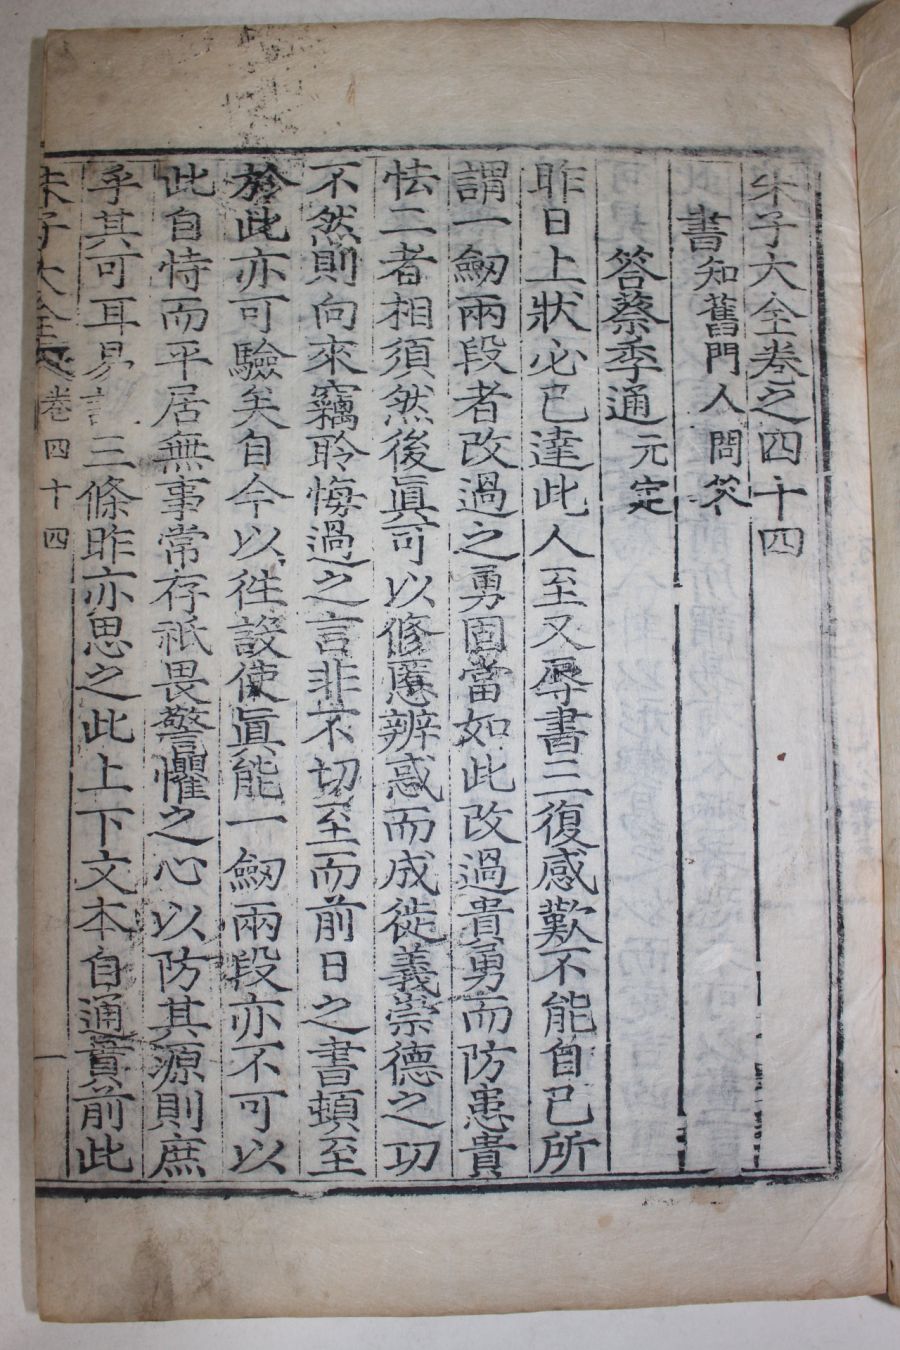 朱子大全卷之四十四
書知舊門人問答
答蔡季通元定
昨日上狀必已達此人至又辱書三復感歎不能自已所
謂一劒兩段者改過之勇固當如此改過貴勇而防患貴
怯二者相須然後眞可以修慝辨惑而成徙義崇德之功
不然則向來竊聆悔過之言非不切至而前日之書頓至
於此亦可驗矣自今以往設使眞能一劒兩段亦不可以
此自恃而平居無事常存祗畏警懼之心以防其源則庶
乎其可耳易說三條昨亦思之此上下文本自通貫前此
朱子大全 卷四十四 一